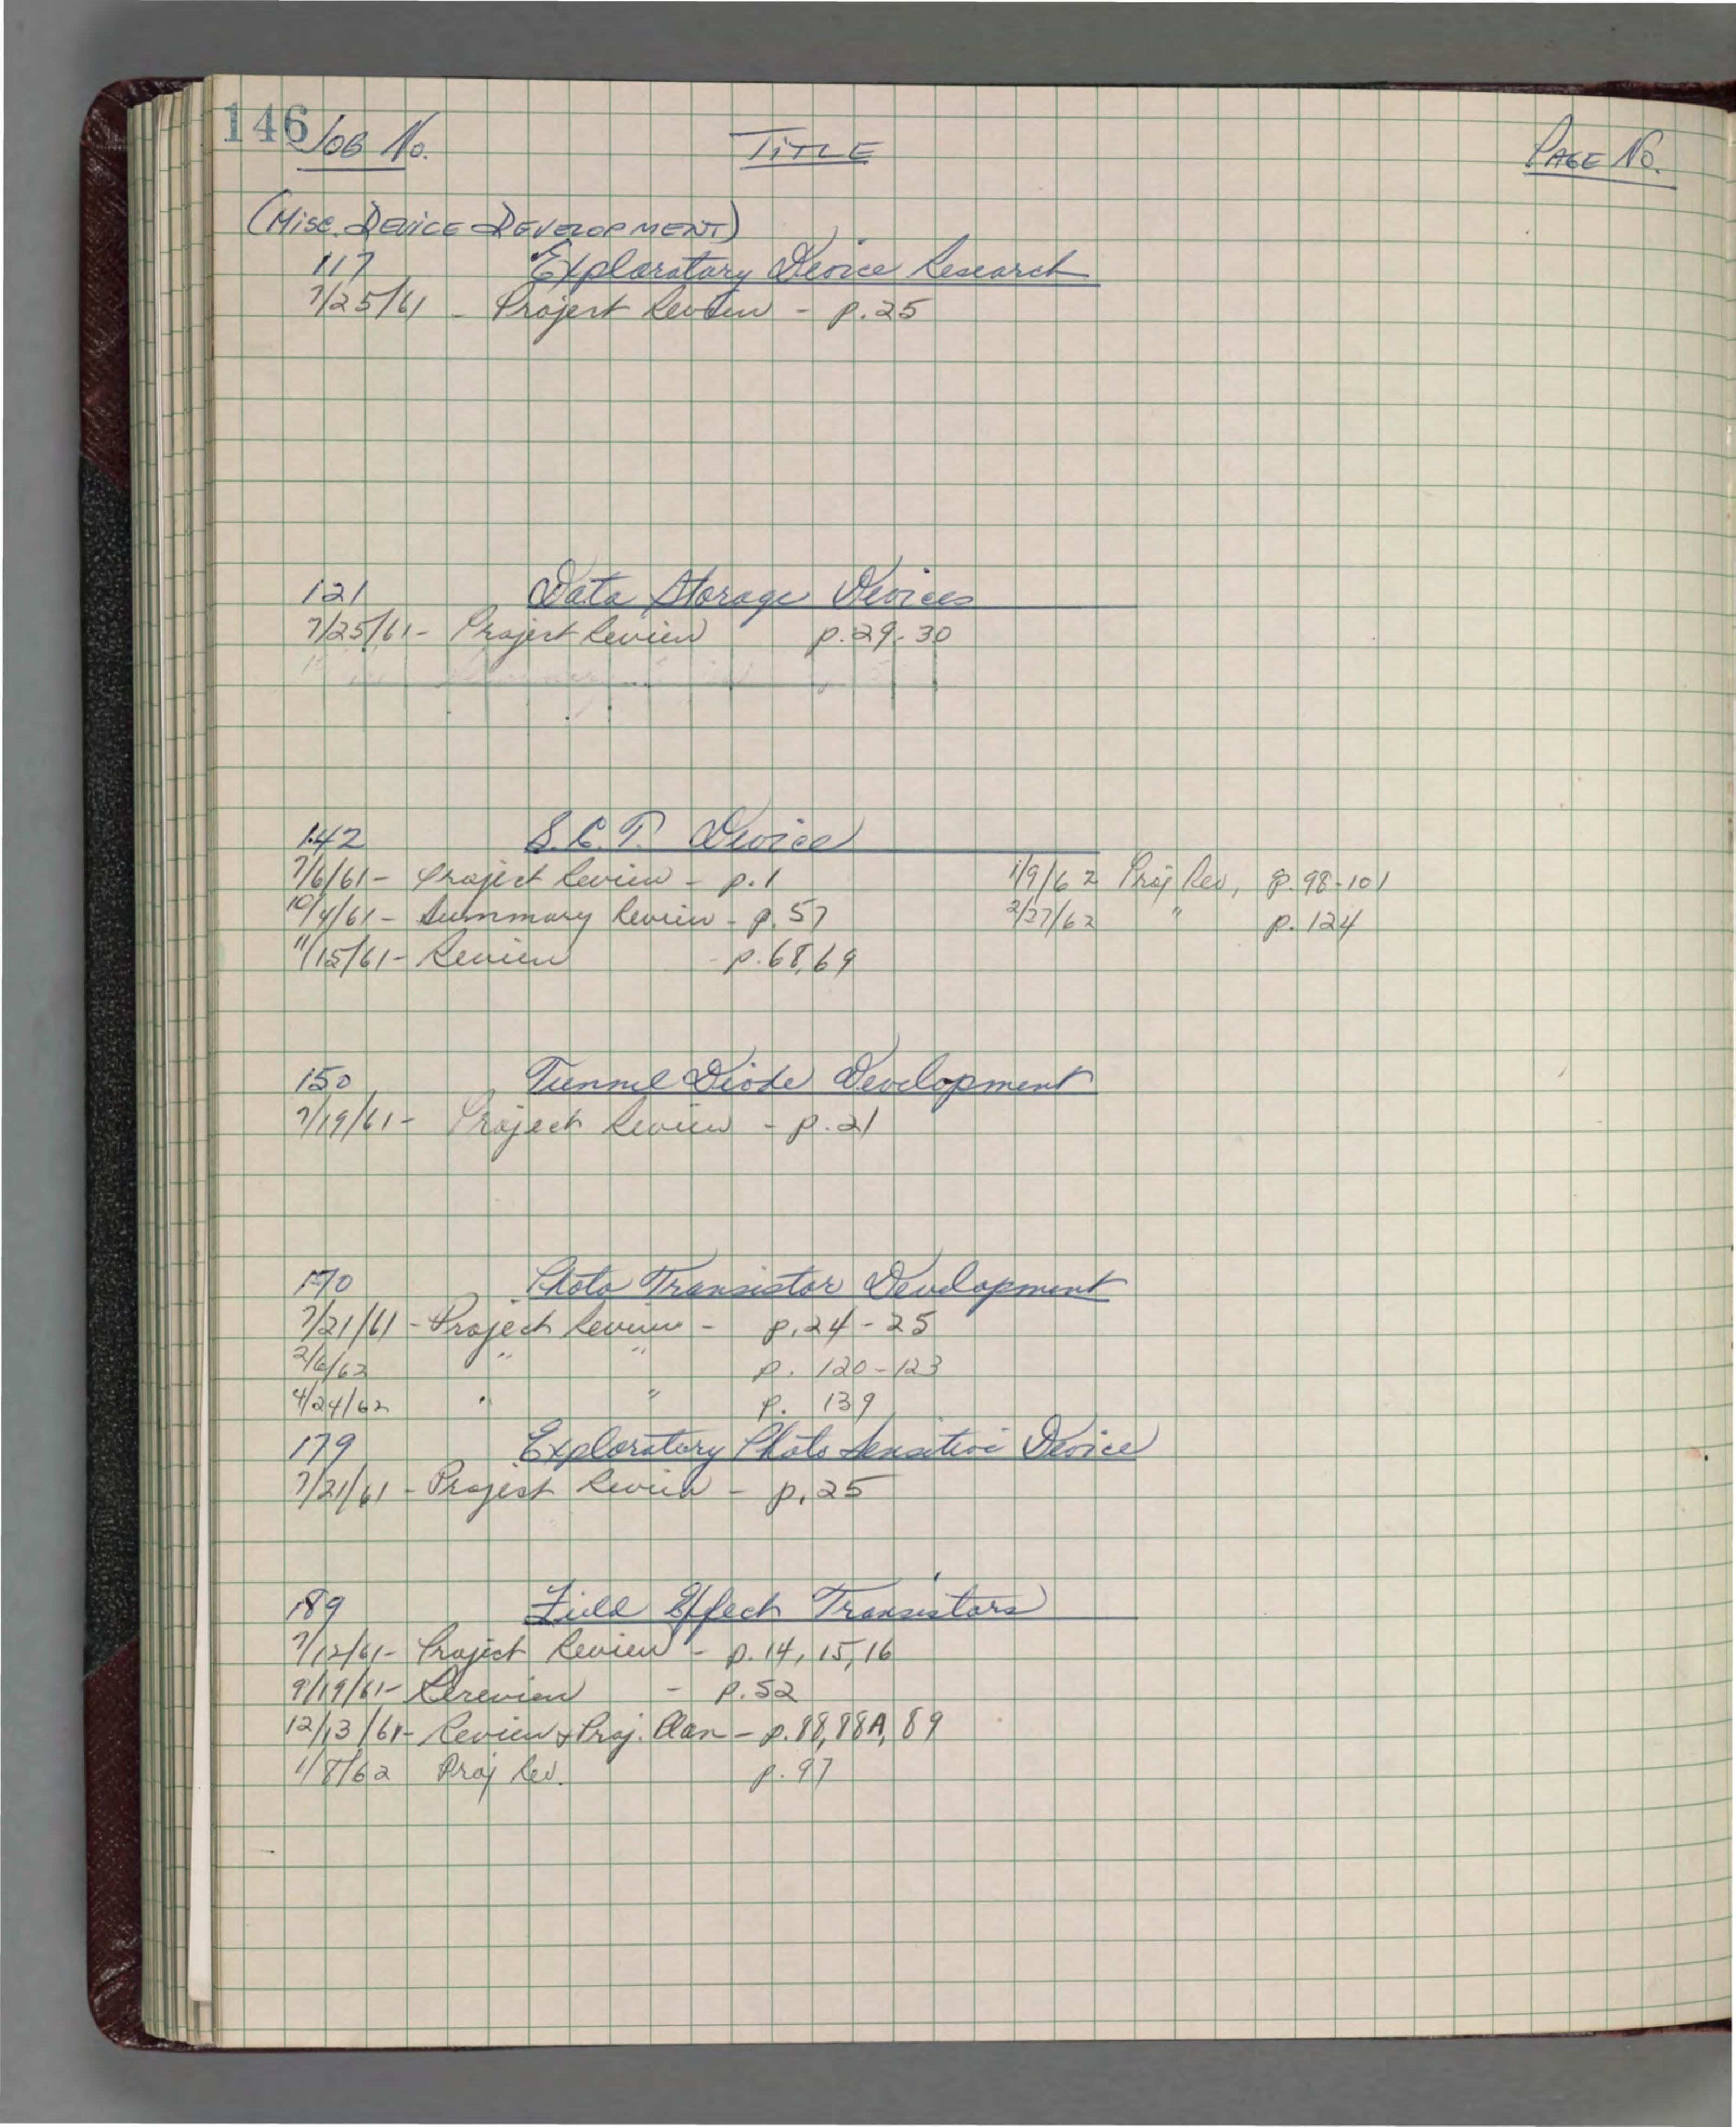 146 JOB No. TITLE PAGE No.
(MISC. DEVICE DEVELOPMENT)
117 Exploratory Device Research
7/25/61 - Project Review - p. 25
121 Data Storage Devices
7/25/61 - Project Review p. 29-30
142 S.C.T. Device
7/6/61 - Project Review - p. 1 1/9/62 Proj Rev, p. 98-101
10/4/61 - Summary Review - p. 57 2/27/62 " p. 124
11/15/61 - Review - p. 68, 69
150 Tunnel Diode Development
7/19/61 - Project Review - p. 21
170 Photo Transistor Development
7/21/61 - Project Review - p. 24-25
2/6/62 " " p. 120-123
4/24/62 " " p. 139
179 Exploratory Photo Sensitive Device
7/21/61 - Project Review - p. 25
189 Field Effect Transistors
7/12/61 - Project Review - p. 14, 15, 16
9/19/61 - Rereview - p. 52
12/13/61 - Review & Proj. Plan - p. 88, 88A, 89
1/8/62 Proj Rev. p. 97